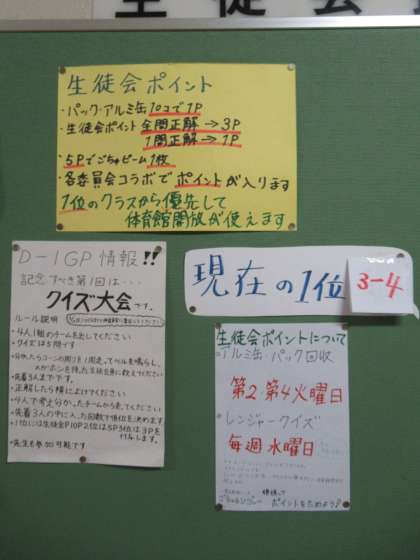 生徒会
生徒会ポイント
・パック・アルミ缶1コで1P
・生徒会ポイント 全問正解→3P
1問正解→1P
・5Pでごちゅビーム1枚
・各委員会コラボでポイントが入ります
1位のクラスから優先して
体育館開放が使えます
D-1GP情報!!
記念すべき第1回は・・・
クイズ大会です。
ルール説明
・4人1組のチームを出してください
・クイズは5問です
・先着3人までです。
・正解したら横によけてください
・4人で考え分かったチームから走ってください
・先着3人の中に入った回数で順位を決めます
・1位には生徒会P10P2位は5P3位は3Pを
付与します。
・先生も参加可能です
現在の1位 3-4
生徒会ポイントについて
アルミ缶・パック回収
第2・第4火曜日
・レンジャークイズ
毎週 水曜日
ポイントをためよう♪